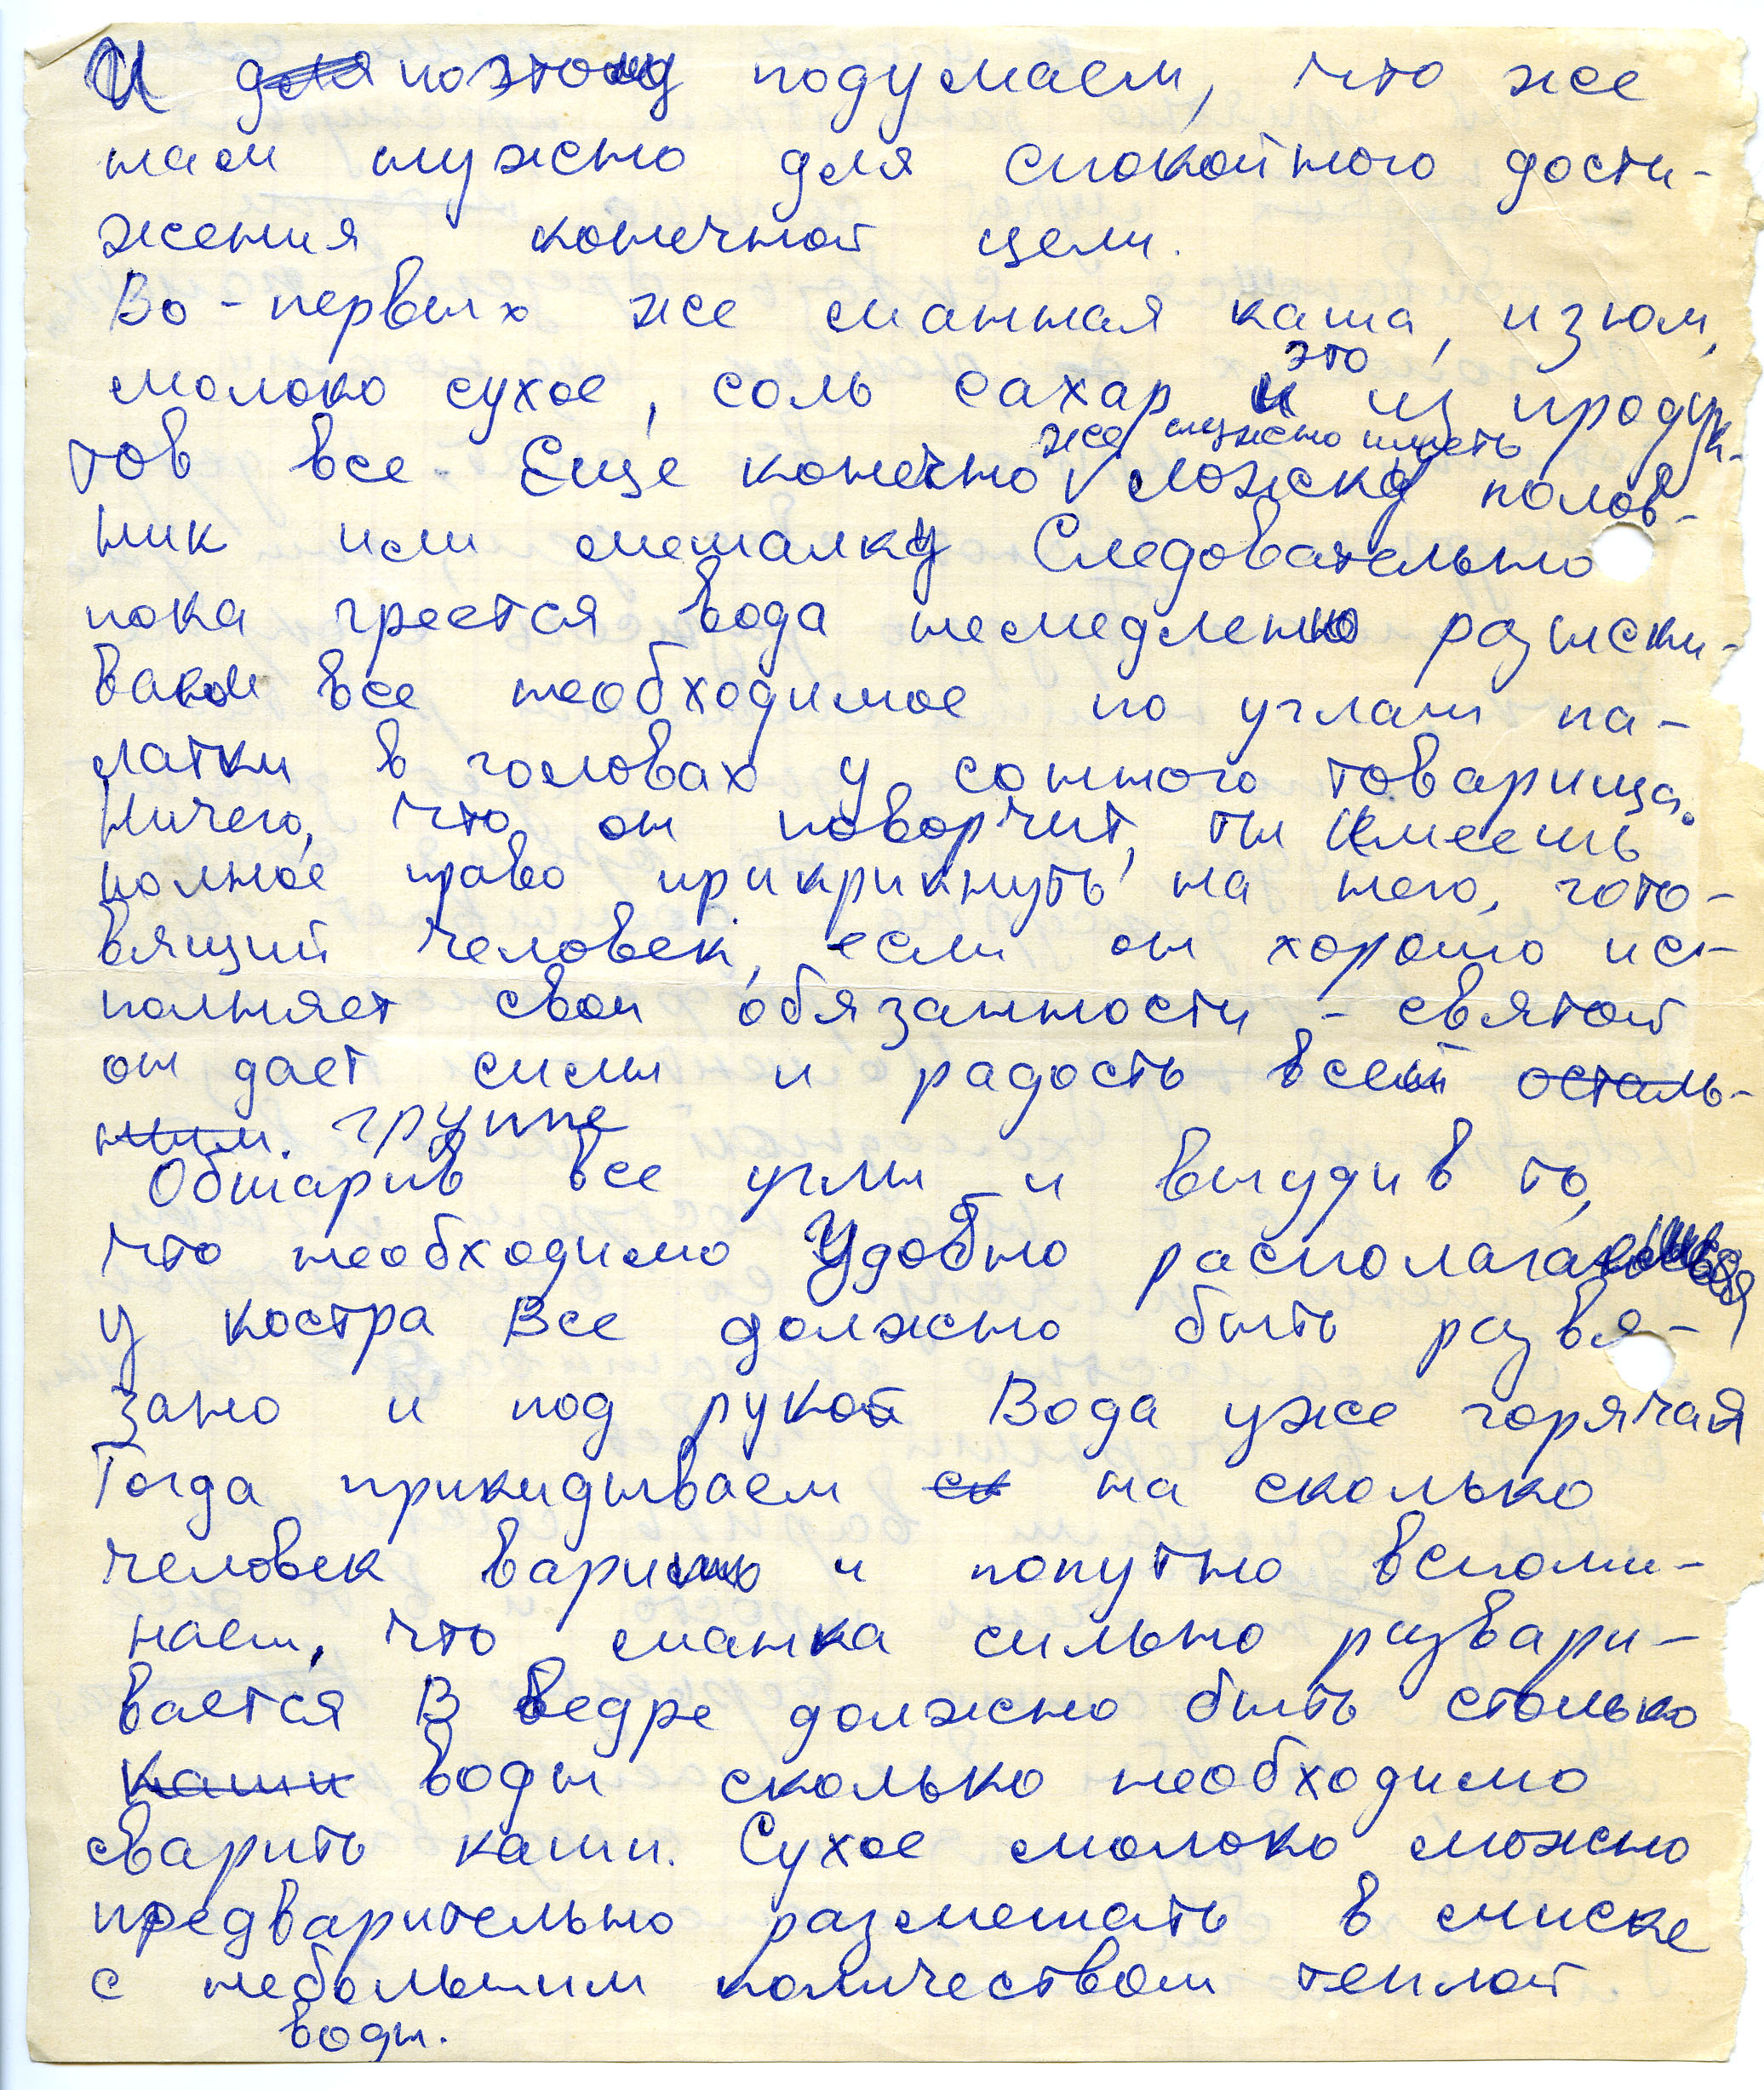 И для поэтому подумаем, что же
нам нужно для спокойного дости-
жения конечной цели.
Во-первых же манная каша, изюм,
молоко сухое, соль сахар и это из продук-
тов все. Еще конечно же нужно иметь ложку полов-
ник или мешалку Следовательно
пока греется вода немедленно разыски-
ваем все необходимое по углам па-
латки в головах у сонного товарища.
Ничего, что он поворчит, ты имеешь
полное право прикрикнуть на него, гото-
вящий человек, если он хорошо ис-
полняет свои обязанности - святой
он дает силы и радость всей осталь-
ным. группе
Обшарив все углы и выудив то,
что необходимо Удобно располагаемся
у костра Все должно быть развя-
зано и под рукой Вода уже горячая
Тогда прикидываем ск на сколько
человек варим и попутно вспоми-
наем, что манка сильно развари-
вается В ведре должно быть столько
каши воды сколько необходимо
сварить каши. Сухое молоко можно
предварительно размешать в миске
с небольшим количеством теплой
воды.